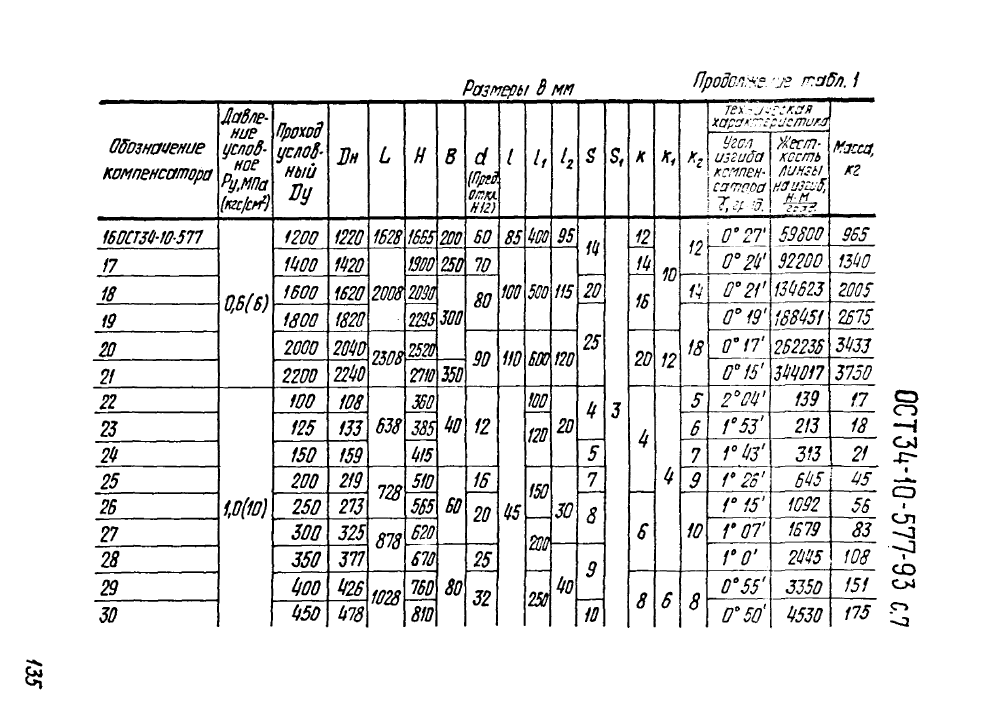 Размеры в мм
Продолжение табл. 1
Обозначение компенсатора | Давление условное Pу, МПа (кгс/см²) | Проход условный Dу | Dн | L | H | B | d (Пред. откл. H12) | l | l₁ | l₂ | S | S₁ | к | к₁ | к₂ | Техническая характеристика | Масса, кг
Угол изгиба компенсатора γ, град. | Жесткость линзы на изгиб, Н·М/град.
16 ОСТ34-10-577 | 0,6(6) | 1200 | 1220 | 1628 | 1665 | 200 | 60 | 85 | 400 | 95 | 14 | 3 | 12 | 10 | 12 | 0° 27' | 59800 | 965
17 | 1400 | 1420 | 2008 | 1900 | 250 | 70 | 100 | 500 | 115 | 14 | 0° 24' | 92200 | 1340
18 | 1600 | 1620 | 2090 | 300 | 80 | 20 | 16 | 14 | 0° 21' | 134623 | 2005
19 | 1800 | 1820 | 2295 | 25 | 18 | 0° 19' | 188451 | 2675
20 | 2000 | 2040 | 2308 | 2520 | 90 | 110 | 600 | 120 | 20 | 12 | 0° 17' | 262236 | 3433
21 | 2200 | 2240 | 2710 | 350 | 0° 15' | 344017 | 3750
22 | 1,0(10) | 100 | 108 | 638 | 360 | 40 | 12 | 45 | 100 | 20 | 4 | 4 | 4 | 5 | 2° 04' | 139 | 17
23 | 125 | 133 | 385 | 120 | 6 | 1° 53' | 213 | 18
24 | 150 | 159 | 415 | 5 | 7 | 1° 43' | 313 | 21
25 | 200 | 219 | 728 | 510 | 60 | 16 | 150 | 30 | 7 | 9 | 1° 26' | 645 | 45
26 | 250 | 273 | 565 | 20 | 8 | 6 | 10 | 1° 15' | 1092 | 56
27 | 300 | 325 | 878 | 620 | 200 | 1° 07' | 1679 | 83
28 | 350 | 377 | 670 | 80 | 25 | 40 | 9 | 1° 0' | 2445 | 108
29 | 400 | 426 | 1028 | 760 | 32 | 250 | 8 | 6 | 8 | 0° 55' | 3350 | 151
30 | 450 | 478 | 810 | 10 | 0° 50' | 4530 | 175
ОСТ34-10-577-93 с.7
135